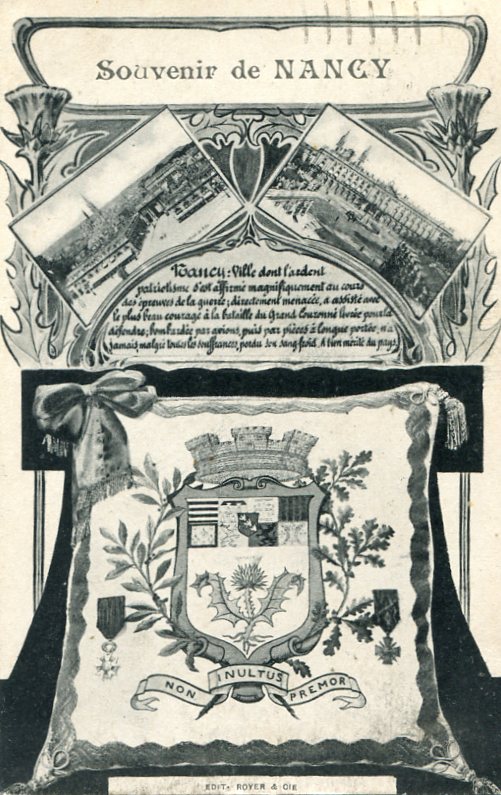 Souvenir de NANCY
Nancy : Ville dont l'ardent
patriotisme s'est affirmé magnifiquement au cours
des épreuves de la guerre ; directement menacée, a assisté avec
le plus beau courage à la bataille du Grand Couronné livrée pour la
défendre ; bombardée par avions, puis par pièces à longue portée, n'a
jamais, malgré toutes les souffrances, perdu son sang-froid. A bien mérité du pays.
NON INULTUS PREMOR
EDIT. ROYER & CIE